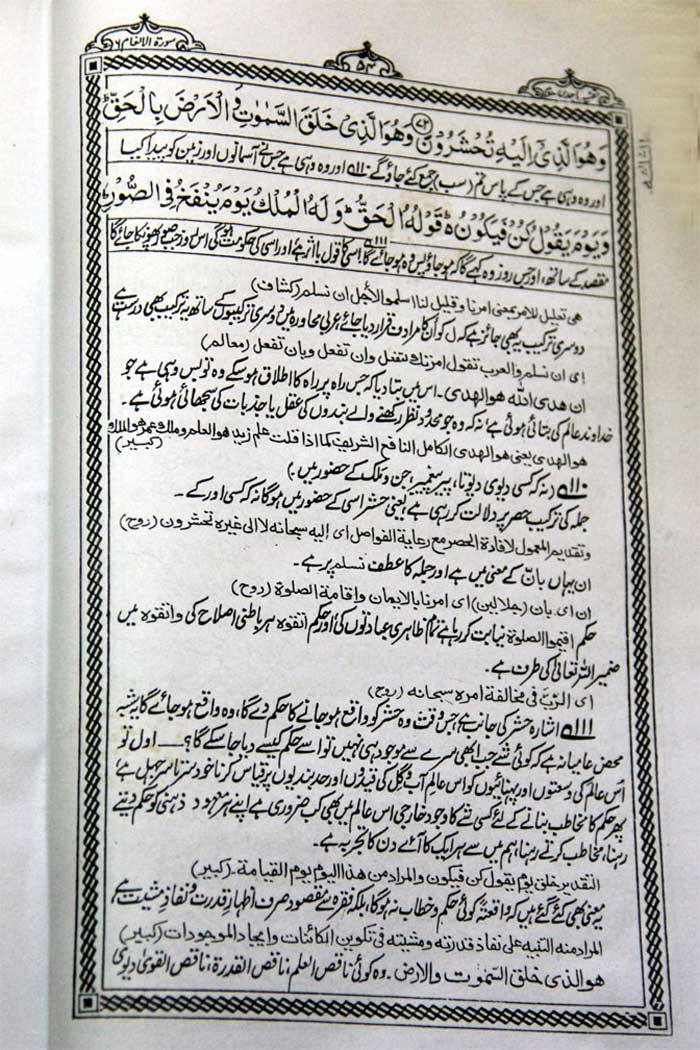 سورة الانعام ٦
٥٣
وَهُوَ الَّذِیْٓ اِلَیْهِ تُحْشَرُوْنَ ﴿۷۲﴾ وَهُوَ الَّذِیْ خَلَقَ السَّمٰوٰتِ وَ الْاَرْضَ بِالْحَقِّ ؕ
اور وہ وہی ہے جس کے پاس تم (سب) جمع کئے جاؤ گے ۱۱۰ اور وہ وہی ہے جس نے آسمانوں اور زمین کو پیدا کیا
وَیَوْمَ یَقُوْلُ كُنْ فَیَكُوْنُ ؕ قَوْلُهُ الْحَقُّ ؕ وَلَهُ الْمُلْكُ یَوْمَ یُنْفَخُ فِی الصُّوْرِ ؕ
مقصد کے ساتھ، اور جس روز وہ کہے گا کہ ہو جا تو بس وہ ہو جائے گا ۱۱۱ اسی کا قول با اثر ہے اور اسی کی حکومت ہو گی اس روز جب صور پھونکا جائے گا
هی تعلیل للامر بمعنی امرنا وقیل لنا اسلموا لأجل ان نسلم (کشاف)
دوسری ترکیب یہ بھی جائز ہے کہ ل کو اَن کا مرادف قرار دیا جائے، عربی محاورہ میں دوسری ترکیبوں کے ساتھ یہ ترکیب بھی درست ہے
ای ان نسلم والعرب تقول امرتك لتفعل وان تفعل وبان تفعل (معالم)
ان هدی الله هو الهدی۔ اس میں بتا دیا کہ جس راہ پر راہ کا اطلاق ہو سکے وہ تو بس وہی ہے جو
خداوند عالم کی بتائی ہوئی ہے نہ کہ وہ جو محدود نظر رکھنے والے بندوں کی عقل یا جذبات کی سجھائی ہوئی ہے۔
هو الهدی یعنی هو الهدی الکامل النافع الشریف کما اذا قلت علم زید هو العلم وملك عمرو هو الملك
(کبیر)
۱۱۰ (نہ کہ کسی دیوی دیوتا، پیر پیغمبر، جن و ملک کے حضور میں۔)
جملہ کی ترکیب حصر پر دلالت کر رہی ہے یعنی حشر اسی کے حضور میں ہو گا نہ کہ کسی اور کے۔
وتقدیم المعمول لافادة الحصر مع رعایة الفواصل ای إلیه سبحانه لا الی غیره تحشرون (روح)
ان یہاں بانّ کے معنی میں ہے اور جملہ کا عطف نسلم پر ہے۔
ان ای بان (جلالین) ای امرنا بالایمان واقامة الصلوة (روح)
حکم اقیموا الصلوة نیابت کر رہا ہے تمام ظاہری عبادتوں کی اور حکم اتقوه ہر باطنی اصلاح کی واتقوه میں
ضمیر اللہ تعالیٰ کی طرف ہے۔
ای الربّ فی مخالفة امره سبحانه (روح)
۱۱۱ اشارہ حشر کی جانب ہے، جس وقت وہ حشر کو واقع ہو جانے کا حکم دے گا، وہ واقع ہو جائے گا یہ شبہ
محض عامیانہ ہے کہ کوئی شے جب ابھی سرے سے موجود ہی نہیں تو اسے حکم کیسے دیا جا سکے گا؟ — اول تو
اُس عالم کی وسعتوں اور پہنائیوں کو اس عالم آب و گِل کی قیدوں اور حد بندیوں پر قیاس کرنا خود سرتاسر جہل ہے
پھر حکم کا مخاطب بنانے کے لئے کسی شے کا وجود خارجی اس عالم میں بھی کب ضروری ہے اپنے ہر معہود ذہنی کو حکم دیتے
رہنا، مخاطب کرتے رہنا، ہم میں سے ہر ایک کا آئے دن کا تجربہ ہے۔
التقدیر خلق یوم یقول کن فیکون والمراد من هذا الیوم یوم القیامة۔ (کبیر)
یہ معنی بھی کئے گئے ہیں کہ واقعۃً کوئی حکم و خطاب نہ ہو گا، بلکہ فقرہ سے مقصود صرف اظہار قدرت و نفاذ مشیت ہے
المراد منه التنبیه علی نفاذ قدرته ومشیته فی تکوین الکائنات وایجاد الموجودات (کبیر)
هو الذی خلق السمٰوٰت والارض۔ وہ کوئی ناقص العلم، ناقص القدرة، ناقص القویٰ دیوی